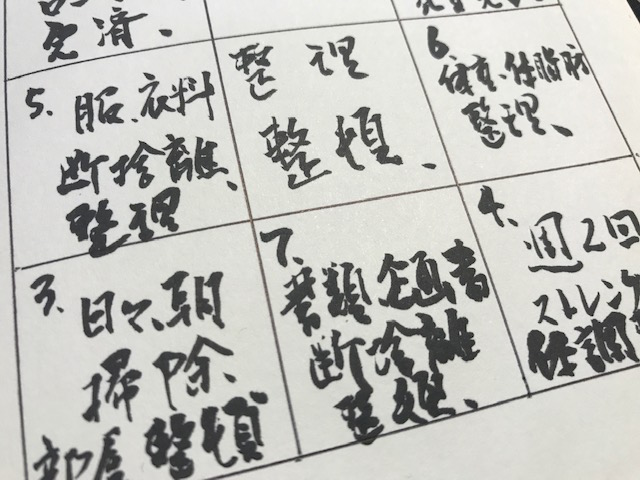 完済、
5、服、衣料
断捨離、
整理
整理
整頓、
6、
体重、体脂肪
整理、
3、日々、朝
掃除、
部屋整頓
7、
書類 企画書
断捨離
整理、
4、
週2回
ストレング
体調